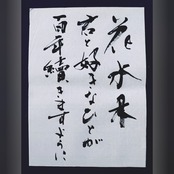 花水木
君と好きなひとが
百年続きますように